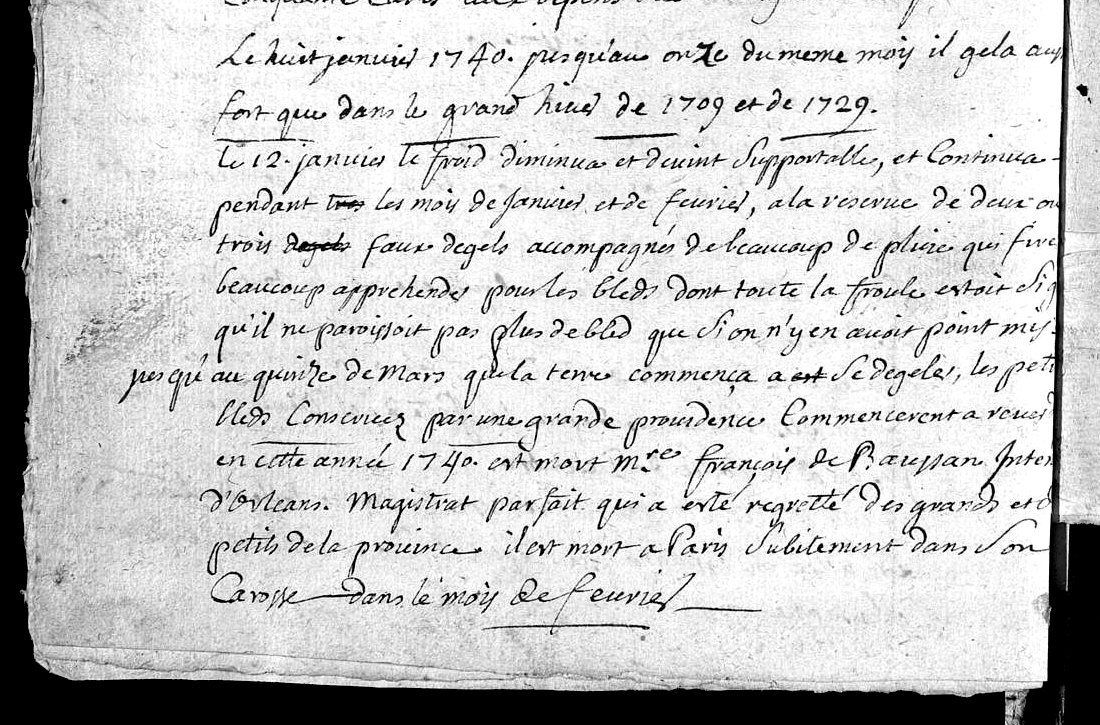 Le huit janvier 1740. jusqu'au onze du meme mois il gela
fort que dans le grand hiver de 1709 et de 1729.
le 12. janvier le froid diminua et devint supportable, et Continua
pendant tres les mois de Janvier et de fevrier, a la reserve de deux ou
trois degels faux degels accompagnés de beaucoup de pluie qui fire
beaucoup apprehender pour les bleds dont toutte la estoit si
qu'il ne paroissoit pas plus de bled que si on n'y en avoit point mis
jusqu'au quinze de Mars que la terre commença a se degeler, les peti
bleds Conservez par une grande providence Commencerent a
en cette année 1740. est mort mre françois de Baussan Inten
d'Orleans. Magistrat parfait qui a esté regretté des grands et d
petits de la province il est mort a Paris subitement dans son
Carosse dans le mois de fevrier